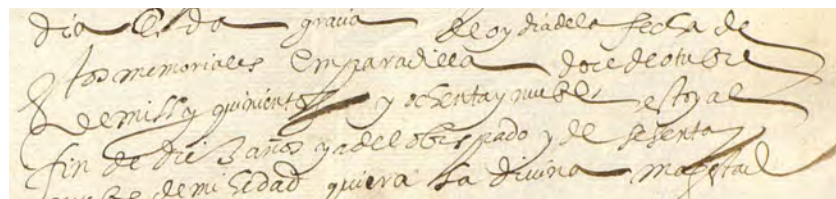 dia gracia de oy dia dela fecha de
tos memoriales Em paradilla doce de otubre
de mill y quinientos y ochenta y nueble estoy al
fin de diez años ya del obispado y de sesenta
de mi hedad quiera la divina magestad